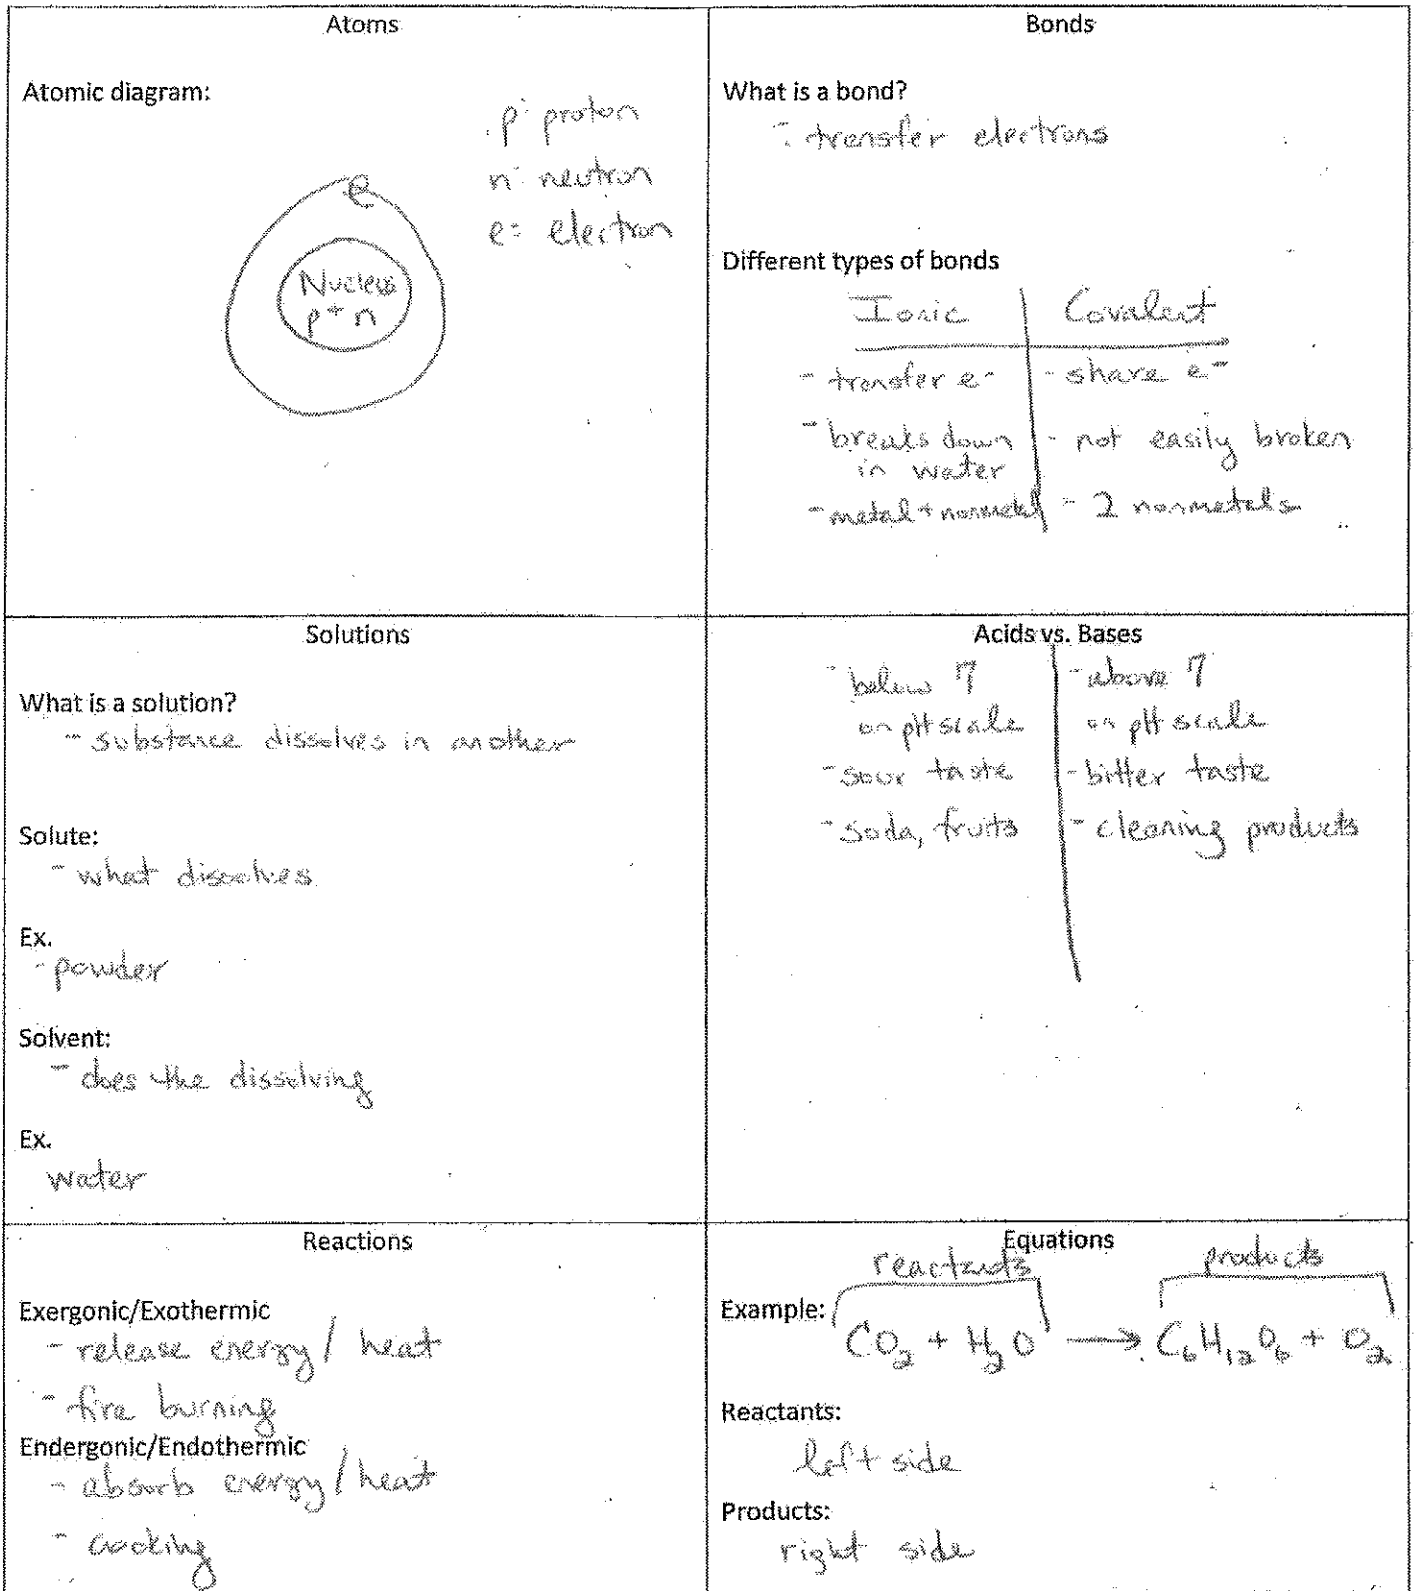 Atoms
Atomic diagram:
p - proton
n - neutron
e = electron
e
Nucleus
p + n
Bonds
What is a bond?
- transfer electrons
Different types of bonds
Ionic | Covalent
- transfer e- | - share e-
- breaks down | - not easily broken
in water
- metal + nonmetal | - 2 nonmetals
Solutions
What is a solution?
- substance dissolves in another
Solute:
- what dissolves
Ex.
- powder
Solvent:
- does the dissolving
Ex.
water
Acids vs. Bases
- below 7 | - above 7
on pH scale | on pH scale
- sour taste | - bitter taste
- soda, fruits | - cleaning products
Reactions
Exergonic/Exothermic
- release energy / heat
- fire burning
Endergonic/Endothermic
- absorb energy / heat
- cooking
Equations
reactants products
Example: CO₂ + H₂O → C₆H₁₂O₆ + O₂
Reactants:
left side
Products:
right side